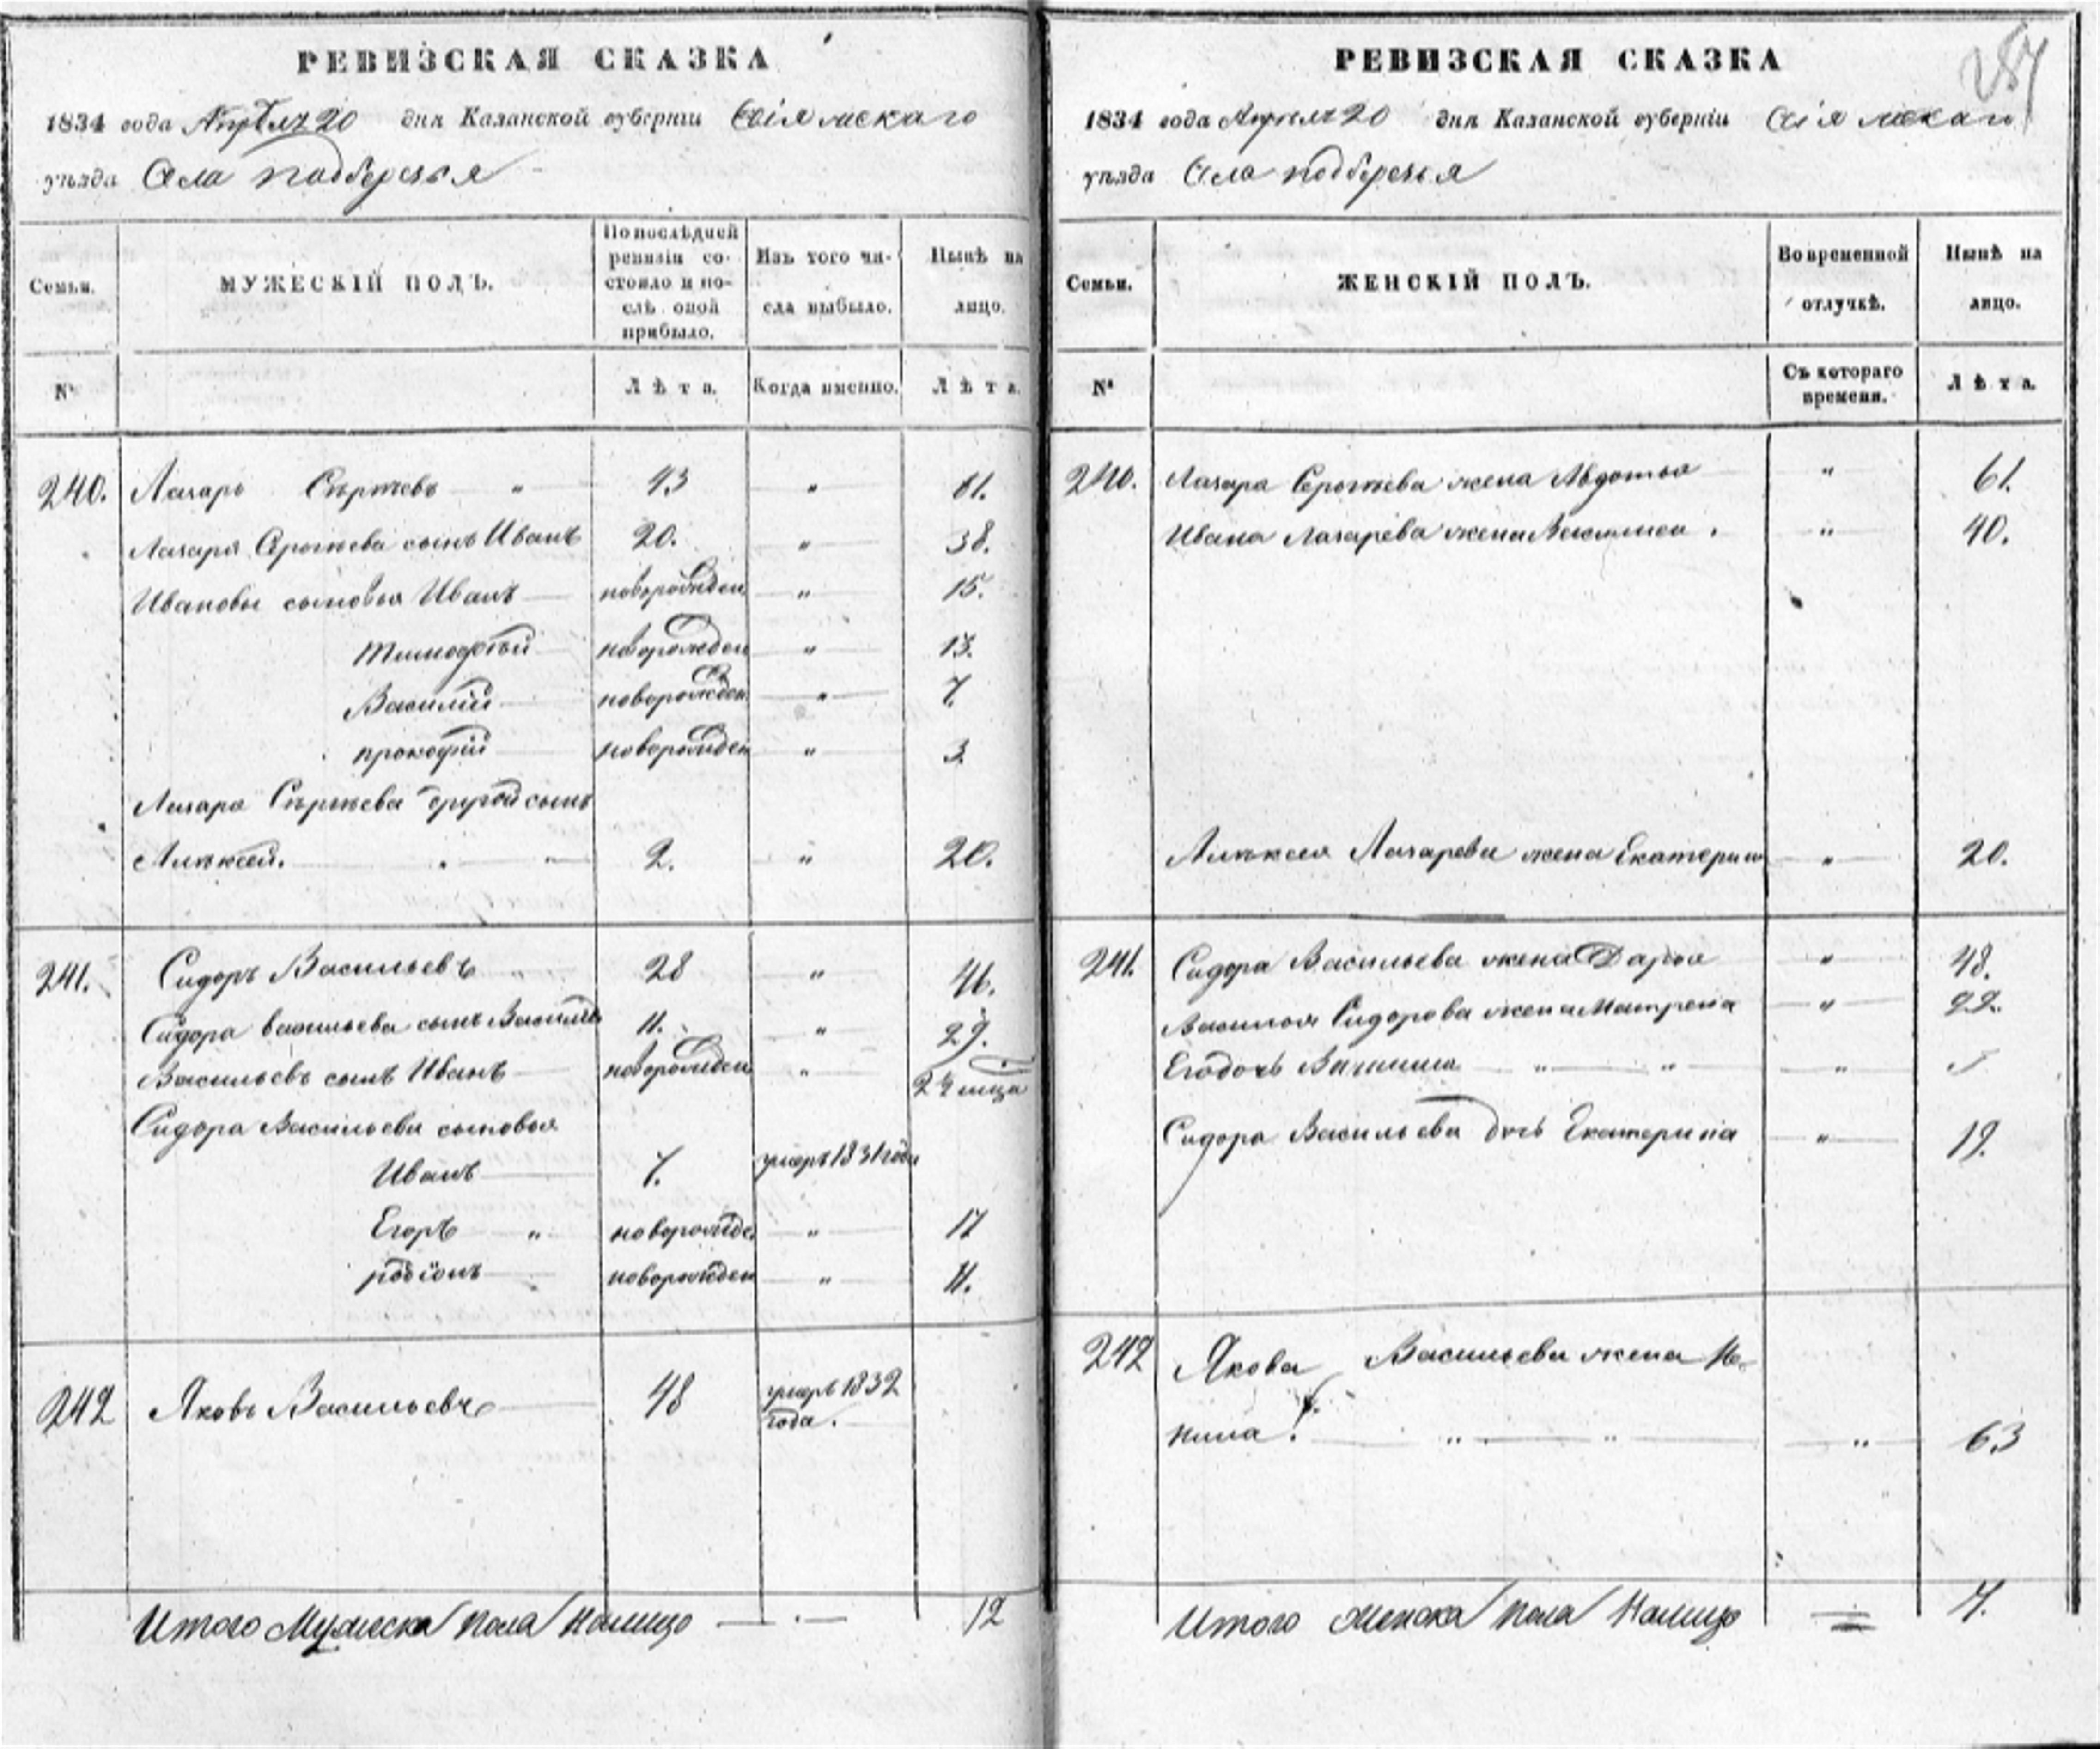 РЕВИЗСКАЯ СКАЗКА
1834 года Апрѣля 20 дня Казанской губерніи Свіяжскаго
уѣзда Села подберезья
Семьи.
МУЖЕСКІЙ ПОЛЪ.
По послѣдней ревизіи состояло и послѣ оной прибыло.
Изъ того числа выбыло.
Нынѣ на лицо.
№
Лѣта.
Когда именно.
Лѣта.
240. Лазарь Сергѣевъ " 43 " 61.
Лазаря Сергѣева сынъ Иванъ 20. " 38.
Ивановы сыновья Иванъ новорожден " 15.
Тимофѣй новорожден " 13.
Василій новорожден " 7.
прокофій новорожден " 3.
Лазаря Сергѣева другой сынъ
Алѣксей. " " 2. " 20.
241. Сидоръ Васильевъ " 28 " 46.
Сидора васильева сынъ Василій 11. " 29.
Васильевъ сынъ Иванъ новорожден " 2 1/2 мца
Сидора Васильева сыновья
Иванъ 7. умеръ 1831 года
Егоръ " новорожде " 17
родіонъ новорожден " 11.
242 Яковъ Васильевъ 48 умеръ 1832
года.
Итого Мужеска пола Налицо 12
РЕВИЗСКАЯ СКАЗКА
257
1834 года Апрѣля 20 дня Казанской губерніи Свіяжскаго
уѣзда Села подберезья
Семьи.
ЖЕНСКІЙ ПОЛЪ.
Во временной отлучкѣ.
Нынѣ на лицо.
№
Съ котораго времени.
Лѣта.
240. Лазара Сергѣева жена Авдотья " 61.
Ивана Лазарева жена Василиса " 40.
Алѣксея Лазарева жена Екатерина " 20.
241. Сидора Васильева жена Дарья " 48.
Василья Сидорова жена Матрена " 22.
Его дочь " " "
Сидора Васильева дочь Екатерина " 19.
242 Якова Васильева жена Не-
нила. " " " 63
Итого Женска пола Налицо 7.